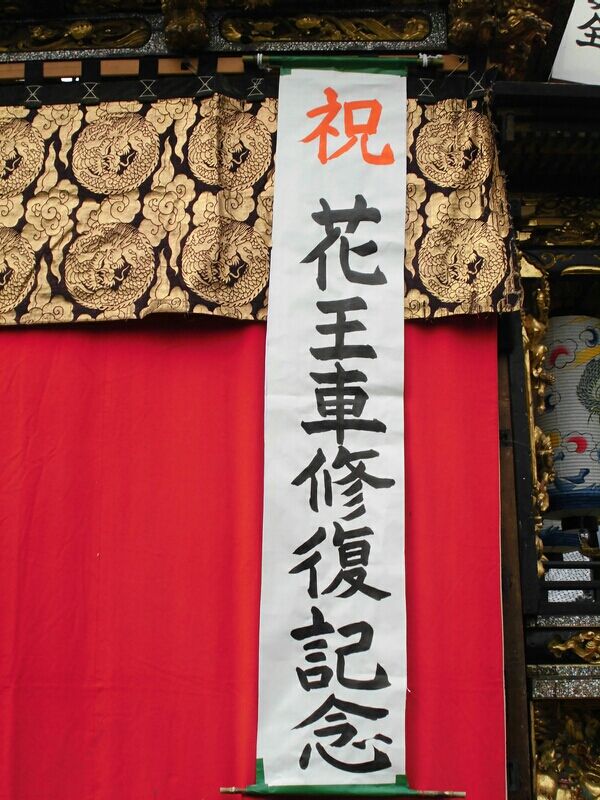 祝 花王車修復記念
全